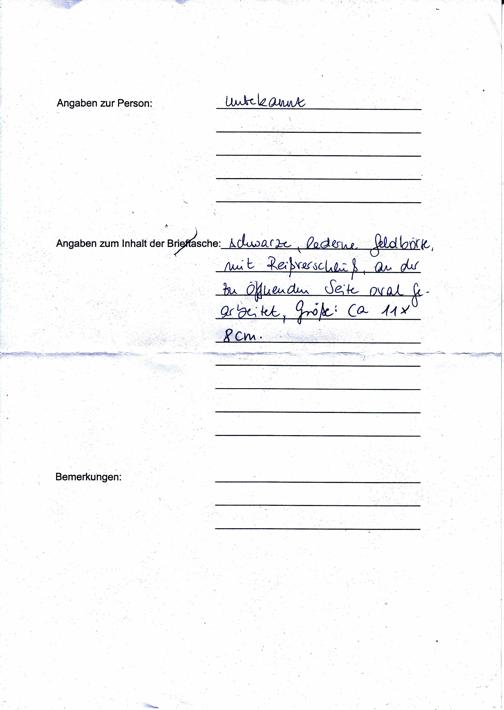 Angaben zur Person: unbekannt
Angaben zum Inhalt der Brieftasche: schwarze, lederne Geldbörse,
mit Reißverschluß, an der
zu öffnenden Seite oval ge-
arbeitet, Größe: ca 11x
8cm.
Bemerkungen: